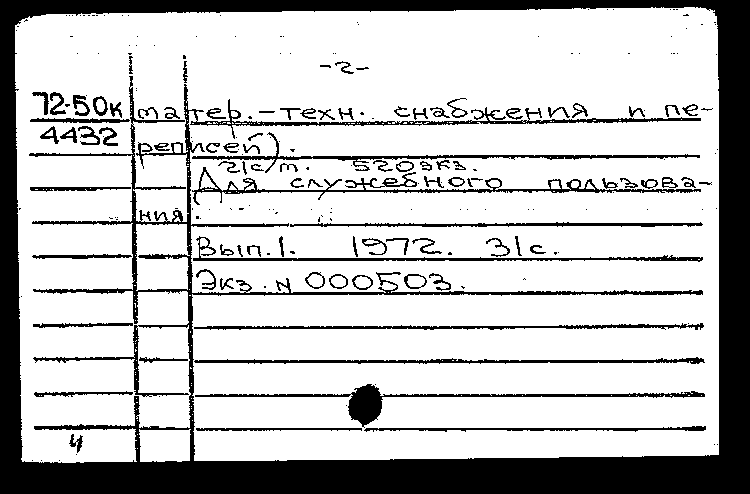 -2-
72-50к матер.-техн. снабжения и пе-
4432 реписей).
21с/т. 520экз.
Для служебного пользова-
ния.
Вып.1. 1972. 31с.
Экз. N 000503.
4